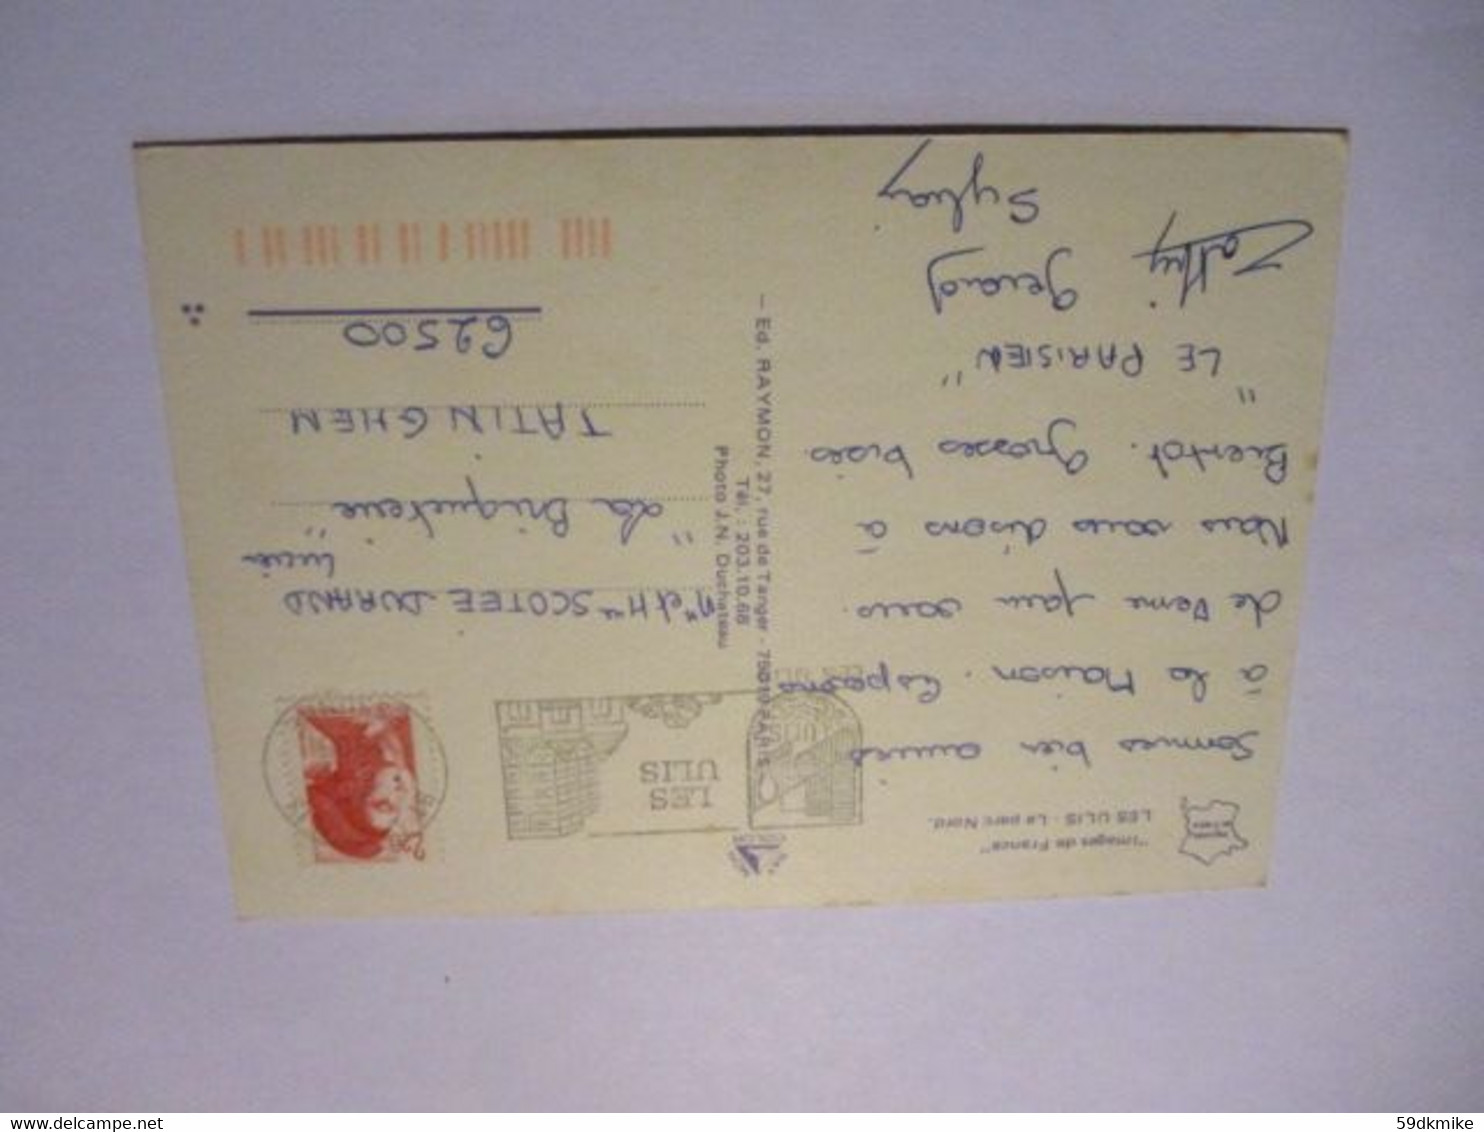 "Images de France"
LES ULIS - Le parc Nord.
Sommes bien arrivés
à la Maison. Espérons
de Meme pour vous.
Nous vous disons à
Bientot. Grosses bises.
"LE PARISIEN"
Cathy Gerard
Sylvain
— Ed. RAYMON, 27, rue de Tanger - 75019 PARIS
Tél. : 203.10.68
Photo J.N. Duchateau
LES
ULIS
LES ULIS
2,20
Mr et Mme SCOTEE DURAND
Lucien
"La Briqueterie"
TATINGHEM
62500
59dkmike